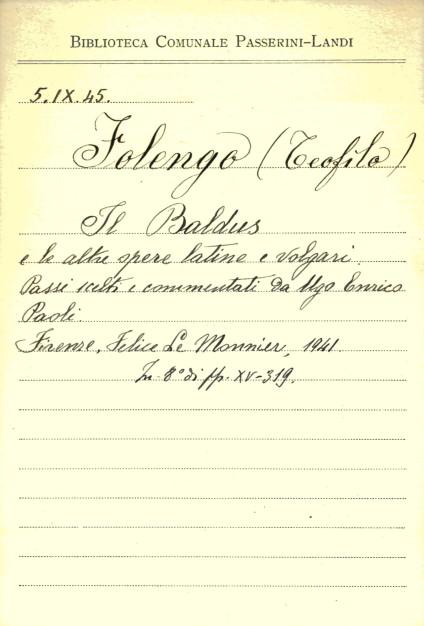 BIBLIOTECA COMUNALE PASSERINI-LANDI
5.IX.45.
Folengo (Teofilo)
Il Baldus
e le altre opere latine e volgari.
Passi scelti e commentati da Ugo Enrico
Paoli.
Firenze, Felice Le Monnier, 1941.
In 8° di pp. XV-319.